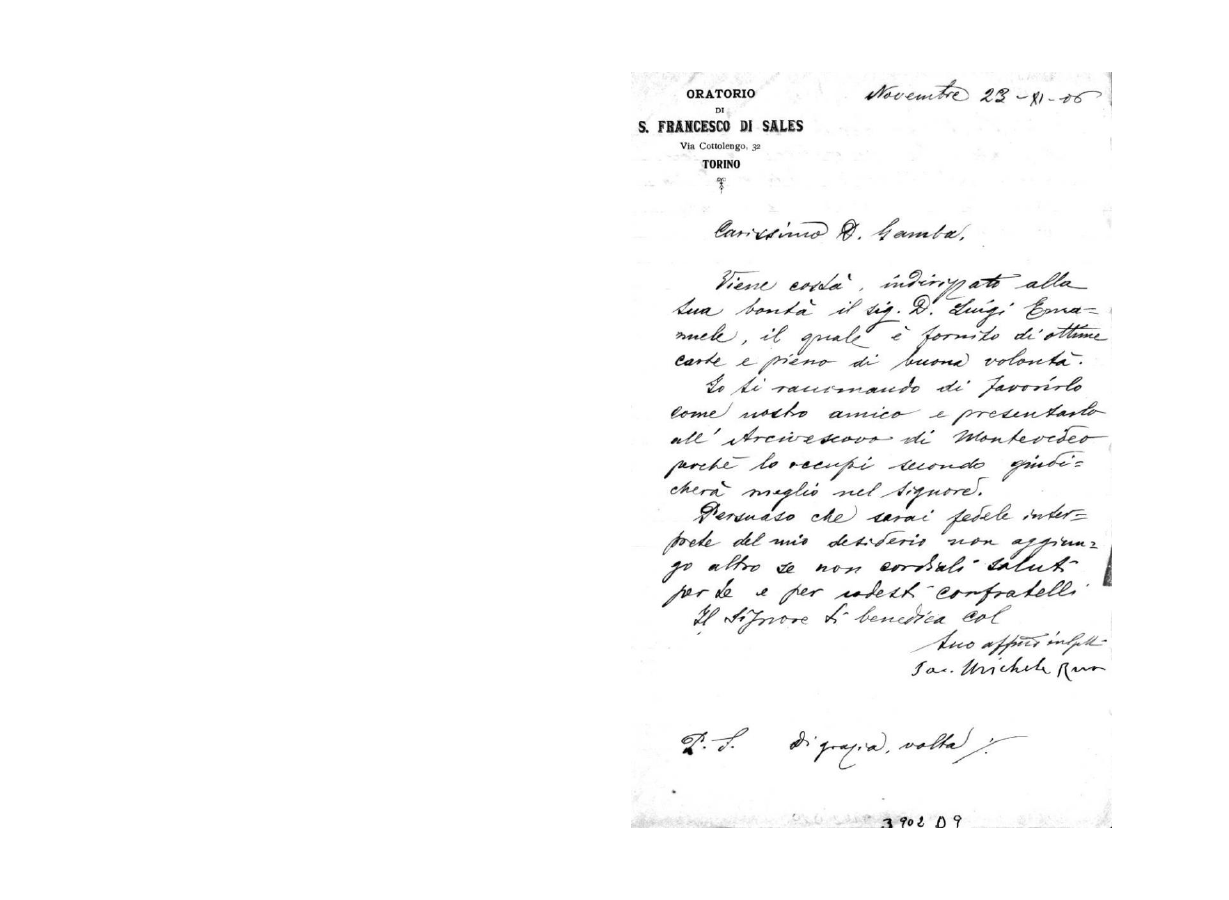 ORATORIO
DI
S. FRANCESCO DI SALES
Via Cottolengo, 32
TORINO
Novembre 23-XI-06
Carissimo D. Gamba,
Viene costà, indirizzato alla
tua bontà il sig. D. Luigi Ema=
nuele, il quale è fornito di ottime
carte e pieno di buona volontà.
Io ti raccomando di favorirlo
come nostro amico e presentarlo
all' Arcivescovo di Montevideo
perchè lo occupi secondo giudi=
cherà meglio nel Signore.
Persuaso che sarai fedele inter=
prete del mio desiderio non aggiun=
go altro se non cordiali saluti
per te e per codesti confratelli
Il Signore ti benedica col
tuo
Sac. Michele Rua
P. S. Di grazia, volta ./.
3902 D 9